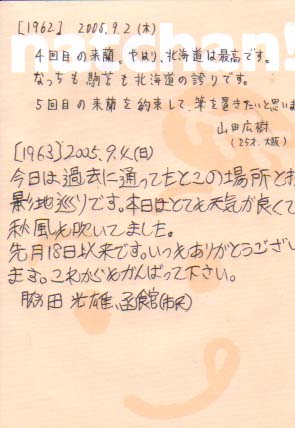 natchan!
[1962] 2005.9.2(木)
4回目の来蘭。やはり、北海道は最高です。
なっちも駒苫も北海道の誇りです。
5回目の来蘭を約束して、筆を置きたいと思いま
山田広樹
(25才、大阪)
[1963] 2005.9.4(日)
今日は過去に通ってたとこの場所とお
影地巡りです。本日はとても天気が良くて
秋風も吹いてました。
先月18日以来です。いつもありがとうござい
ます。これからもがんばって下さい。
脇田 光雄、函館(市民)